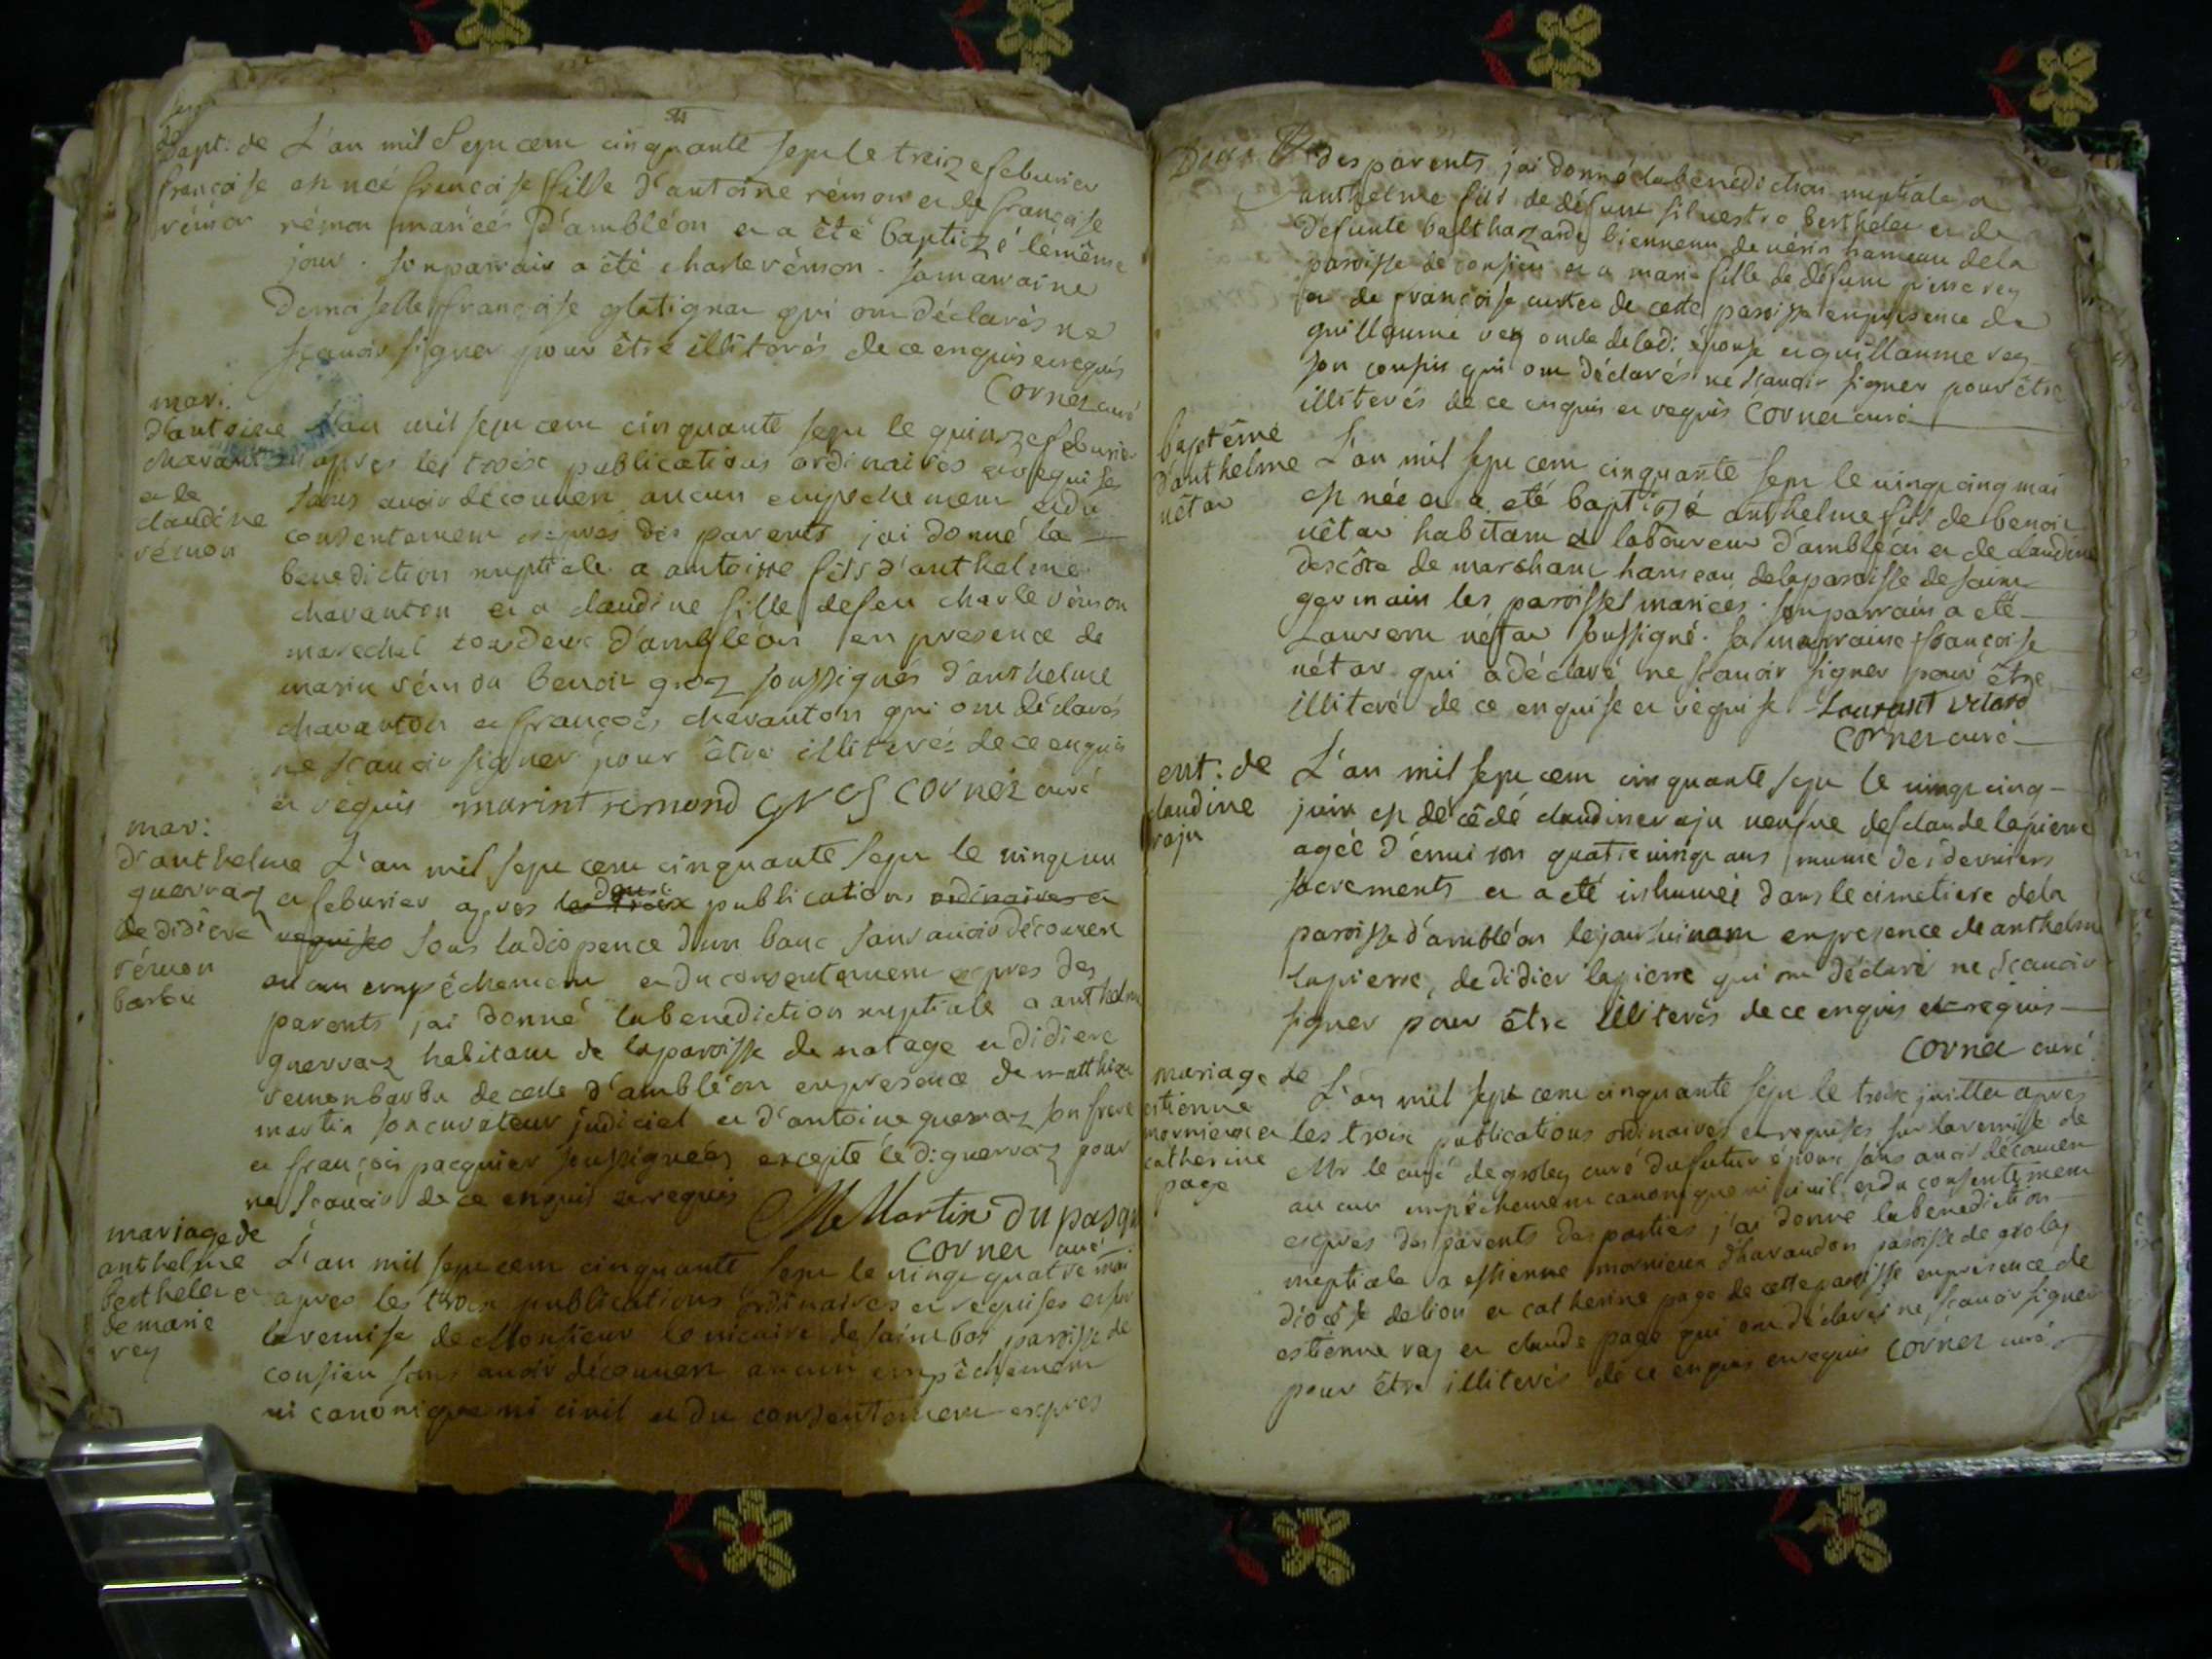 Bapt. de
françoise
rémon
L'an mil Sept cent cinquante sept le treize feburier
est née françoise fille d'antoine rémon et de françoise
rémon mariées d'ambléon et a été baptizé lémême
jour. son parrain a été charle rémon. sa marraine
Demoiselle françoise glatignat qui ont déclarés ne
sçavoir signer pour être illiterés de ce enquis et requis
Cornet curé
mari.
d'antoine
chavanton
et de
claudine
rémon
L'an mil sept cent cinquante sept le quinze feburier
apres les troix publications ordinaires et requises
sans avoir découvert aucun empechement et du
consentement expres des parents jai donné la
benediction nuptiale a antoine fils d'anthelme
chavanton et a claudine fille de feu charle rémon
marechal tous deux d'ambléon en presence de
marin rémon benoit groz soussignés d'anthelme
chavanton et françois chavanton qui ont déclarés
ne scavoir signer pour être illiterés de ce enquis
et requis marint remond cornet curé
mar:
d'anthelme
guerraz
de didiere
rémon
barbu
L'an mil sept cent cinquante sept le vingt un
et feburier apres les troix deux publications ordinaires et
requises sous la dispence d'un banc sans avoir découvert
aucun empêchement et du consentement expres des
parents jai donné la benediction nuptiale a anthelme
guerraz habitant de la paroisse de natage et didiere
remon barbu de celle d'ambléon en presence de matthieu
martin son curateur judiciel et d'antoine guerraz son frere
et françois pacquier soussignées excepté lédi guerraz pour
ne scavoir de ce enquis et requis
Martin du pasqu
cornet curé
mariage de
anthelme
berthelet et
de marie
rey
L'an mil sept cent cinquante sept le vingt quatre mai
apres les troix publications ordinaires et requises et sur
la remise de Monsieur le vicaire de saint bois paroisse de
consieu sans avoir découvert aucun empêchement
ni canonique ni civil et du consentement expres
des parents jai donné la benediction nuptiale a
anthelme fils de défunt silvestre berthelet et de
défunte balthazarde biennenu de vérin hameau dela
paroisse de consieu et a marie fille de défunt pierre rey
et de françoise curtet de cette paroisse en presence de
guillaume rey oncle de ladi: épouse et guillaume rey
son cousin qui ont déclarés ne scavoir signer pour être
illiterés de ce enquis et requis Cornet curé
baptême
d'anthelme
vêtar
L'an mil sept cent cinquante sept le vingt cinq mai
est née et a eté baptizé anthelme fils de benoit
vêtar habitant et laboureur d'ambléon et de claudine
descôte de marchant hameau dela paroisse de saint
germain les paroisses mariées. son parrain a eté
Laurent vétar soussigné. sa marraine françoise
vétar qui a déclaré ne scavoir signer pour être
illiteré de ce enquise et requise Lourant vetard
cornet curé
ent. de
claudine
raju
L'an mil sept cent cinquante sept le vingt cinq
juin est décédé claudine raju veufve de claude lapierre
agée d'environ quatre vingt ans munie des derniers
sacrements et a été inhumée dans le cimetiere dela
paroisse d'ambléon le jour suivant en presence de anthelme
lapierre, de didier lapierre qui ont déclaré ne scavoir
signer pour être illiterés de ce enquis et requis
cornet curé
mariage de
estienne
mornieux et
catherine
page
L'an mil sept cent cinquante sept le troix juillet apres
les troix publications ordinaires et requises sur la remise de
Mr le curé de groley curé du futur époux sans avoir découvert
aucun empêchement canonique ni civil et du consentement
expres des parents des parties j'ai donné la benediction
nuptiale a estienne mornieux d'havaudon paroisse de groley
diocése de lion et catherine page de cette paroisse en presence de
estienne rey et claude page qui ont déclarés ne scavoir signer
pour être illiterés de ce enquis et requis cornet curé